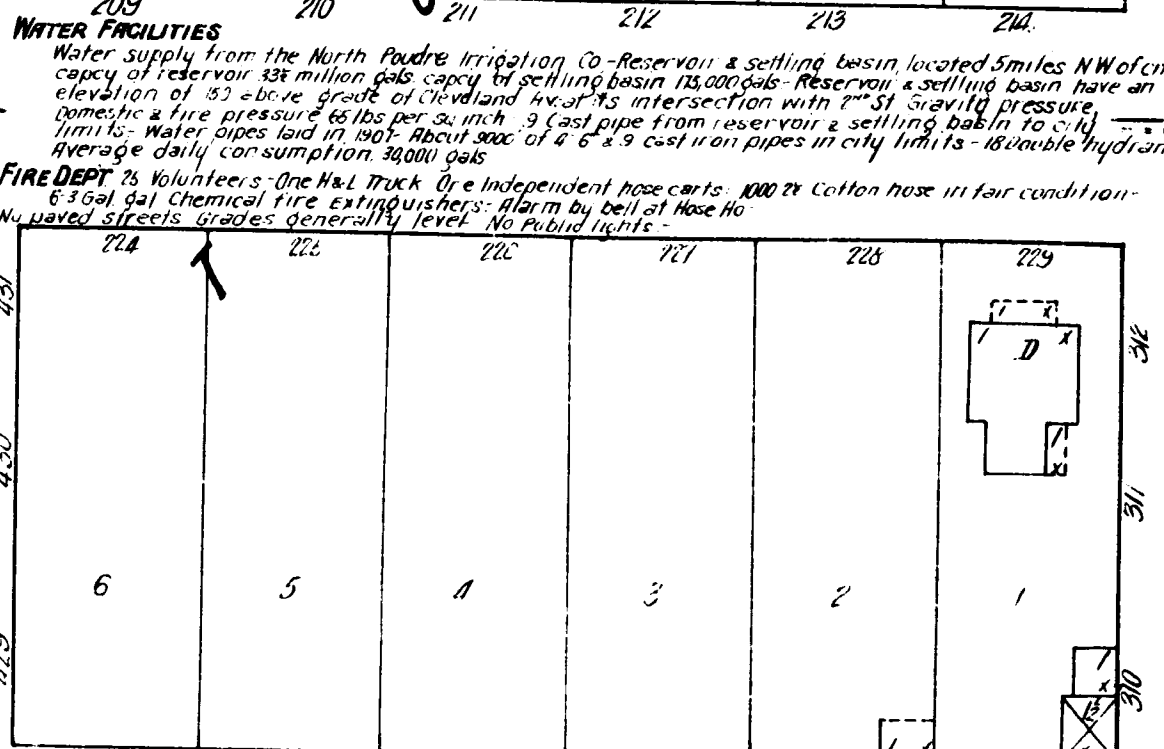 209 210 211 212 213 214
WATER FACILITIES
Water supply from the North Poudre Irrigation Co-Reservoir & settling basin located 5miles NW of
capcy of reservoir million gals. capcy of settling basin 175,000 gals-Reservoir & settling basin have an
elevation of above grade of Cleveland Av. at its intersection with 2nd St Gravity pressure,
Domestic & fire pressure 66 lbs per sq inch 9 Cast pipe from reservoir & settling basin to city
limits- Water pipes laid in 1907- About 9000' of 4" 6" & 9 cast iron pipes in city limits-18 Double
Average daily consumption. 30,000 gals
FIRE DEPT 25 Volunteers-One H&L Truck One Independent hose carts. 1000 Cotton hose in fair condition-
6-3 Gal. gal Chemical fire Extinguishers: Alarm by bell at Hose Ho
No paved streets Grades generally level No Public lights-
224 225 226 227 228 229
431
312
/ x
/ x
D
430
/
x
311
6 5 4 3 2 1
429
/
x
310